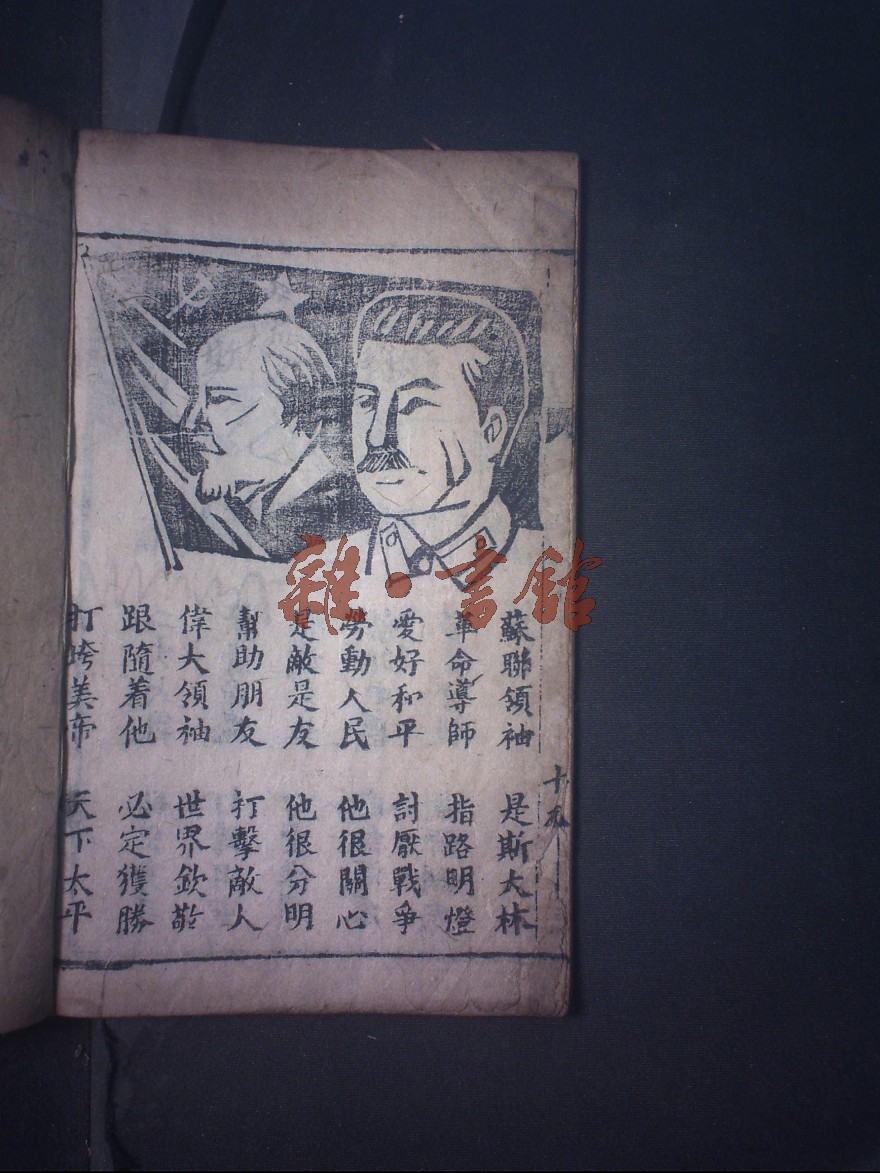 蘇聯領袖 是斯大林
革命導師 指路明燈
愛好和平 討厭戰爭
勞動人民 他很關心
是敵是友 他很分明
幫助朋友 打擊敵人
偉大領袖 世界欽敬
跟隨着他 必定獲勝
打垮美帝 天下太平
十九
雜·書館